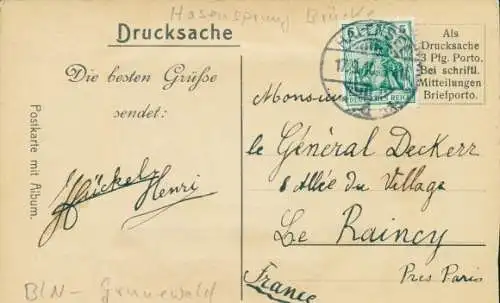 Hasensprung Brücke
Drucksache
Die besten Grüße
sendet:
Henri
Postkarte mit Album.
BLN - Grunewald
HALENSEE
DEUTSCHES REICH
Als
Drucksache
3 Pfg. Porto.
Bei schriftl.
Mitteilungen
Briefporto.
Monsieur
le Général Deckerr
Allée du Village
Le Raincy
Près Paris
France